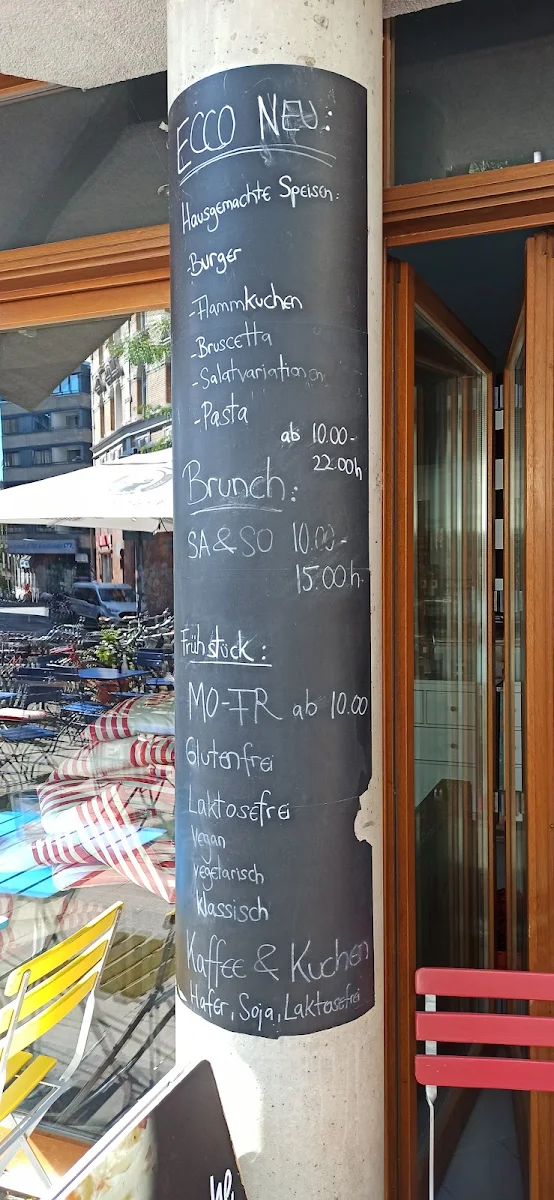 ECCO NEU:
Hausgemachte Speisen:
-Burger
-Flammkuchen
-Bruscetta
-Salatvariationen
-Pasta
ab 10.00-
22.00h
Brunch:
SA & SO 10.00-
15.00h
Frühstück:
MO-FR ab 10.00
Glutenfrei
Laktosefrei
Vegan
vegetarisch
klassisch
Kaffee & Kuchen
Hafer, Soja, Laktosefrei